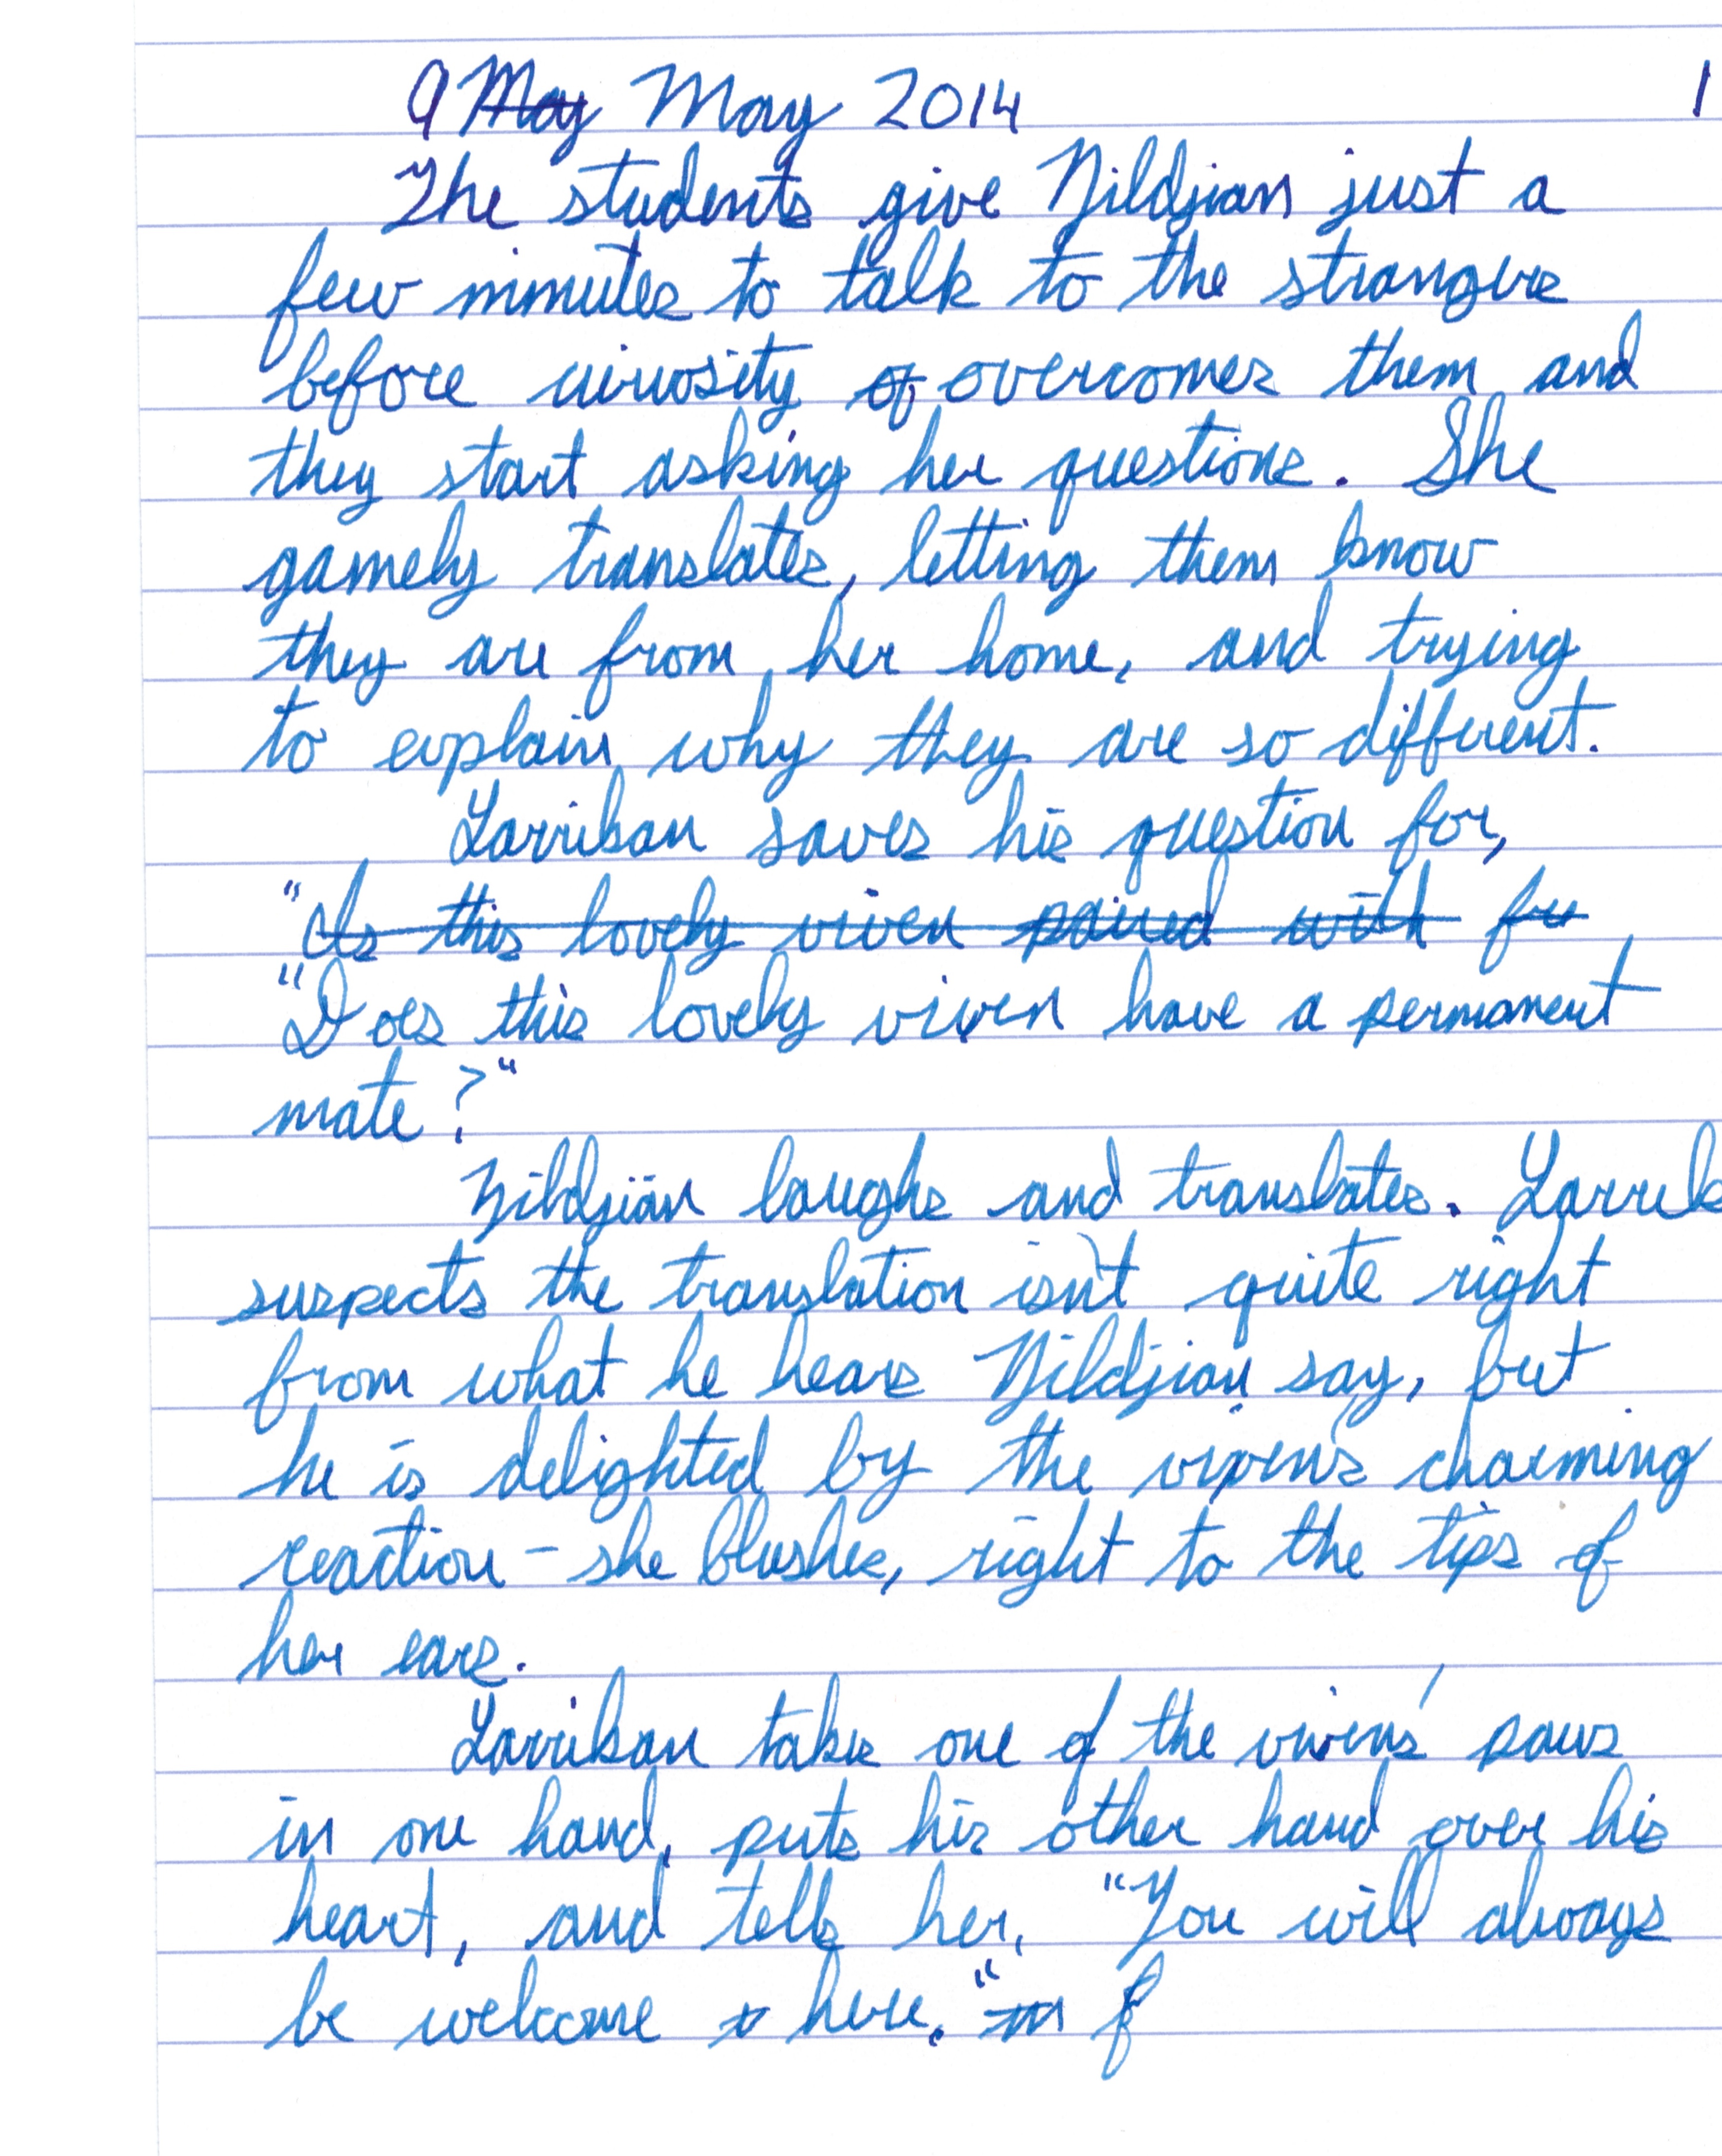 9 May May 2014 1
The students give Zildjian just a
few minutes to talk to the strangers
before curiosity of overcomes them and
they start asking her questions. She
gamely translates, letting them know
they are from her home, and trying
to explain why they are so different.
Larrikan saves his question for,
"Is this lovely vixen paired with fu
"Does this lovely vixen have a permanent
mate?"
Zildjian laughs and translates. Larrik
suspects the translation isn't quite right
from what he hears Zildjian say, but
he is delighted by the vixen's charming
reaction – she blushes, right to the tips of
her ears.
Larrikan takes one of the vixen's paws
in one hand, puts his other hand over his
heart, and tells her, "You will always
be welcome here." m f